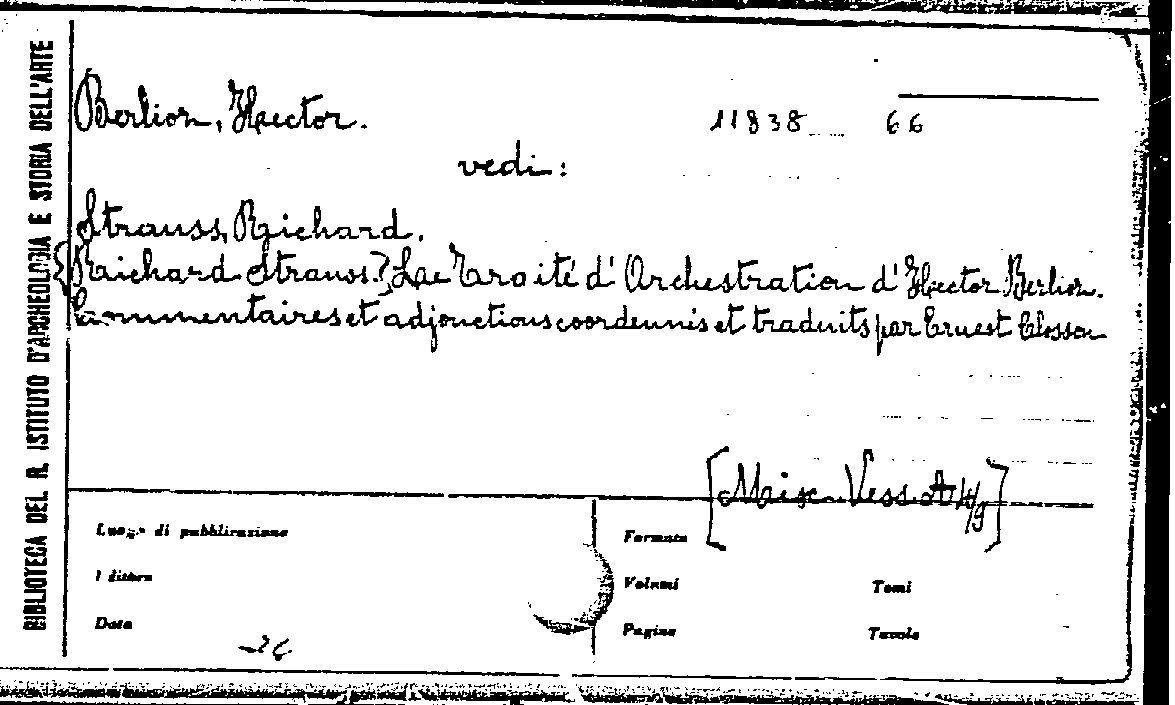 BIBLIOTECA DEL R. ISTITUTO D'ARCHEOLOGIA E STORIA DELL'ARTE
Berlioz, Hector.
11838 66
vedi:
Strauss, Richard.
[Richard Strauss.] Le Traité d'Orchestration d'Hector Berlioz.
Commentaires et adjonctions coordeunis et traduits par Ernest Closson
[Misc. Vess. A 4/9]
Luogo di pubblicazione
Formato
Editore
Volumi Tomi
Data
Pagine Tavole